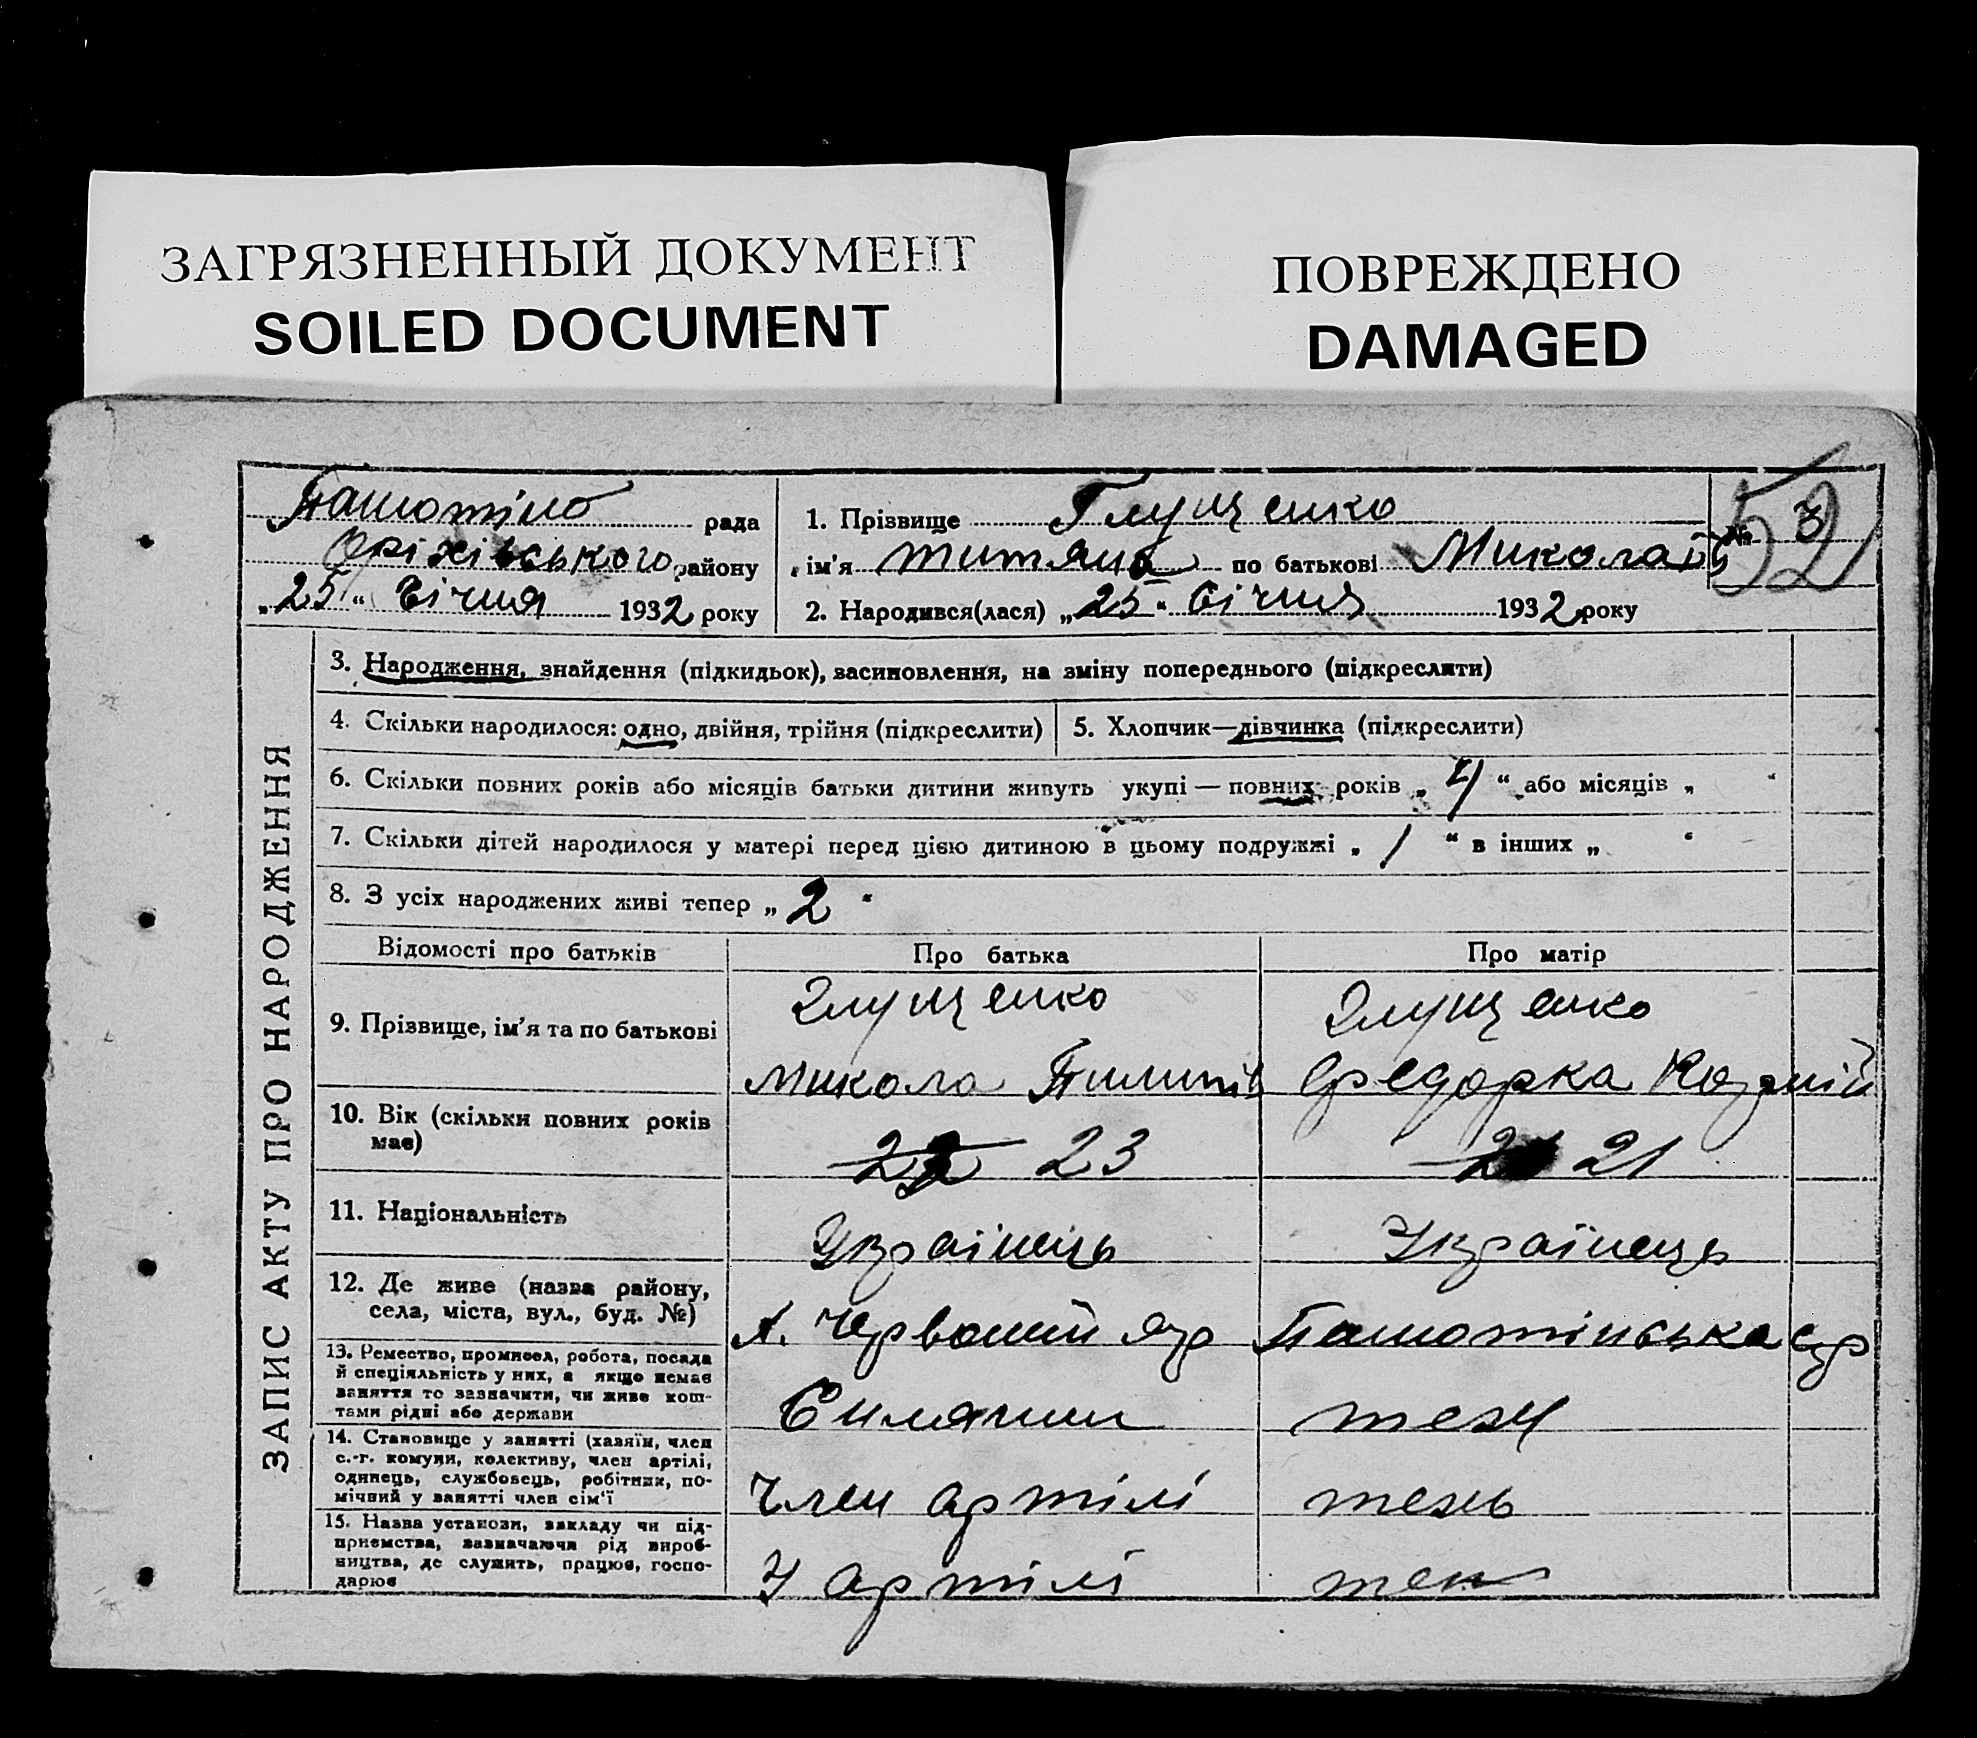 ЗАГРЯЗНЕННЫЙ ДОКУМЕНТ
SOILED DOCUMENT
ПОВРЕЖДЕНО
DAMAGED
рада
Оріхівського району
„25“ Січня 1932 року
1. Прізвище Глущенко
ім'я Титяна по батькові Микола
2. Народився(лася) „25“ Січня 1932 року
№ 3
52
ЗАПИС АКТУ ПРО НАРОДЖЕННЯ
3. Народження, знайдення (підкидьок), засиновлення, на зміну попереднього (підкреслити)
4. Скільки народилося: одно, двійня, трійня (підкреслити)
5. Хлопчик—дівчинка (підкреслити)
6. Скільки повних років або місяців батьки дитини живуть укупі — повних років „4“ або місяців „ “
7. Скільки дітей народилося у матері перед цією дитиною в цьому подружжі „1“ в інших „ “
8. З усіх народжених живі тепер „2“
Відомості про батьків
Про батька
Про матір
9. Прізвище, ім'я та по батькові
Глущенко
Микола Пилипів
Глущенко
Федорка
10. Вік (скільки повних років
має)
23
21
11. Національність
Українець
Українець
12. Де живе (назва району,
села, міста, вул., буд. №)
х. Червоний яр
Пашотінська с/р
13. Ремество, промисел, робота, посада
й спеціяльність у них, а якщо немає
заняття то зазначити, чи живе кош-
тами рідні або держави
теж
14. Становище у занятті (хазяїн, член
с.-г. комуни, колективу, член артілі,
одинець, службовець, робітник, по-
мічний у занятті член сім'ї
Член артілі
тежь
15. Назва установи, закладу чи під-
приємства, зазначаючи рід вироб-
ництва, де служить, працює, госпо-
дарює
У артілі
теж